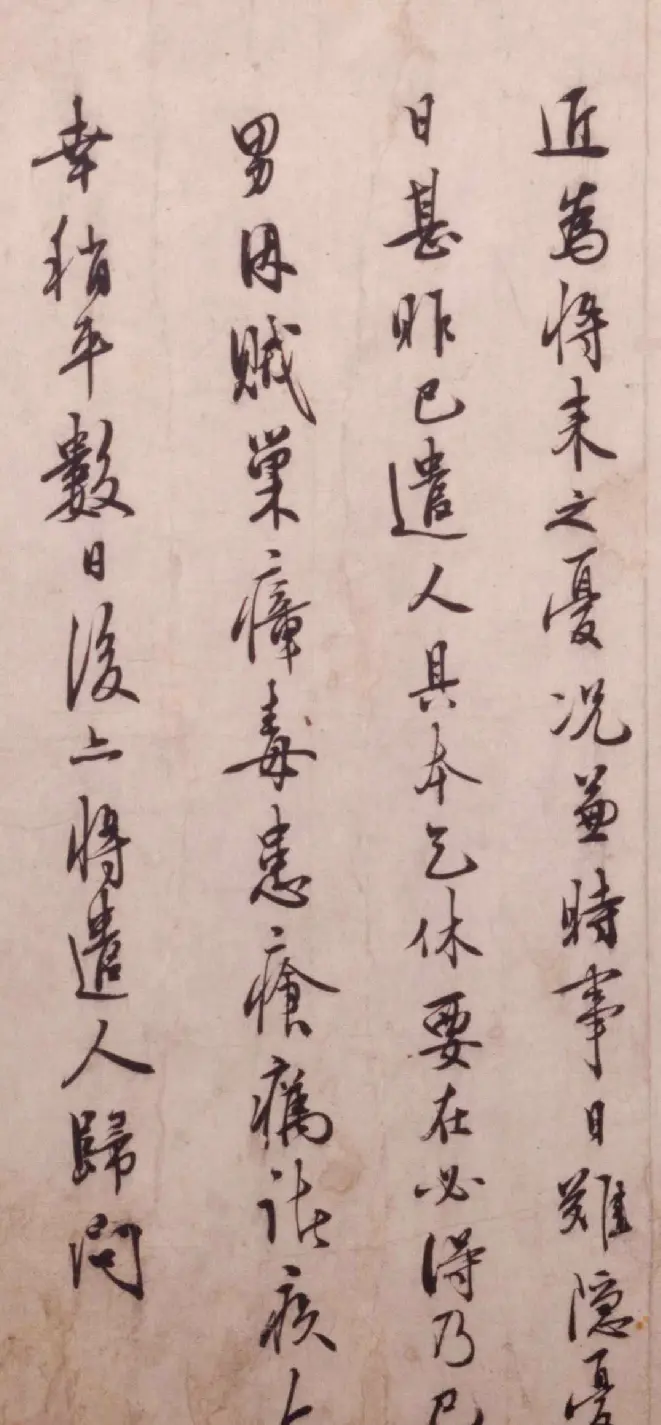 近為將来之憂况兼時事日難隱憂
日甚昨已遣人具本乞休要在必得乃已
男因賊巢瘴毒患瘡癘諸疾上
幸稍平數日後亦將遣人歸問